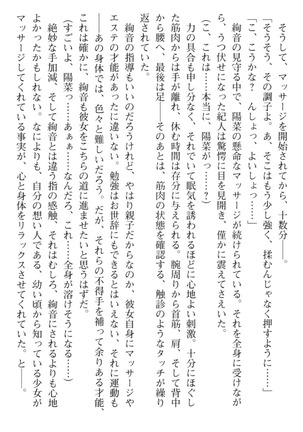 そうして、マッサージを開始されてから、十数分――。
「そうそう、その調子よ。あ、そこはもう少し強く、揉むんじゃなく押すように……」
「こ、こうかな？　んしょっ、よいしょっ……」
　絢音の見守る中で、陽菜の懸命なマッサージが続けられている。それを全身に受けなが
ら、うつ伏せになった紀人は驚愕に目を見開き、僅かに震えてさえいた。
（こ、これは……本当に、陽菜が……っ？）
　力の具合も申し分なく、それでいて眠気を誘われるほどに心地よい刺激。十分にほぐし
た筋肉からは手が離れ、休む時間は存分に与えられる。腕周りから首筋、肩、そして背中
から腰へ、最後は足――そのあとは、筋肉の状態を確認する、触診のようなタッチが繰り
返されていた。
　絢音の指導もいいのだろうけれど、やはり親子だからなのか、彼女自身にマッサージや
エステの才能があったに違いない。勉強はお世辞にもできるとはいえないし、それに運動も
――あの身体では、色々と難しいだろう。だが、それらの不得手を補って余りある才能、
これは確かに、絢音も彼女をこちらの道に進ませたいと思うはずだ。
（すごいよ、陽菜っ……あぁっ……なんだろ、これ……全身が溶けそうになる……）
　絶妙な手加減、そして絢音とは違う指の感触、それはむしろ、絢音にされるよりも心地
よかったかもしれない。なによりも、自分の想い人である、幼い頃から知っている少女が
マッサージしてくれている事実が、心と身体をリラックスさせてくれていた。と――